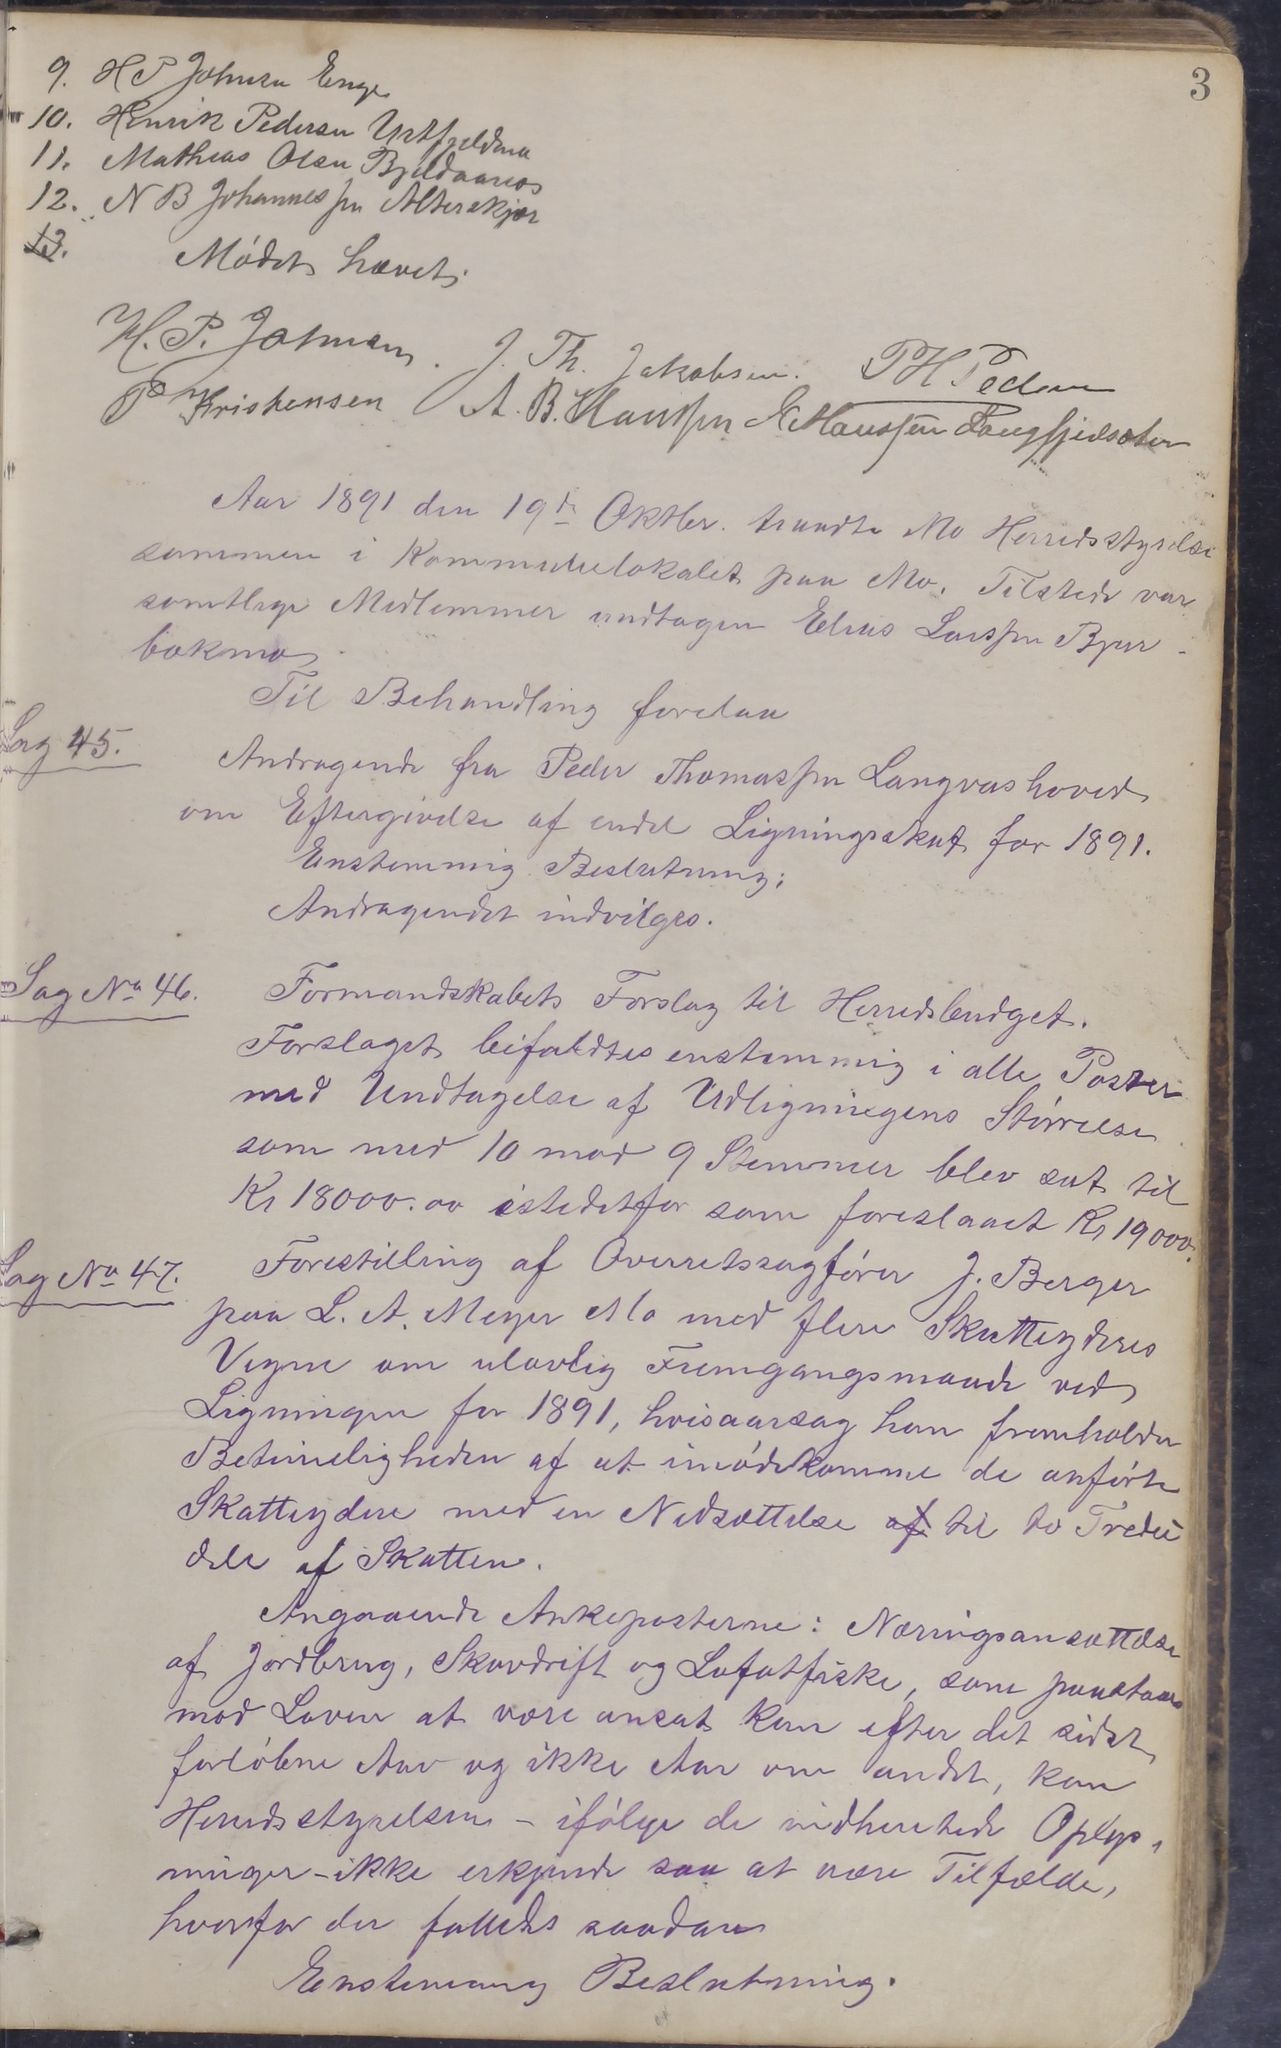 3
9. H P Johnsen Enge
10. Henrik Pedersen Urtfjeldmo
11. Mathias Olsen Bjeldaanæs
12. N B Johannesßen Alterskjær
13.
Mødet hævet.
H. P. Johnsen. J. Th. Jakobsen. P H Pedersen
P Kristensen A. B. Hansßen E Hansßen Langfjeldsæter
Aar 1891 den 19de Oktbr. traadte Mo Herredsstyrelse
sammen i Kommunelokalet paa Mo. Tilstede var
samtlige Medlemmer undtagen Elias Larsßen Bjur-
bækmo
Til Behandling forelaa
Sag 45.
Andragende fra Peder Thomasßen Langvashoved
om Eftergivelse af endel Ligningsskat for 1891.
Enstemmig Beslutning:
Andragendet indvilges.
Sag No 46.
Formandskabets Forslag til Herredsbudget.
Forslaget bifaldtes enstemmig i alle Poster
med Undtagelse af Udligningens Størrelse
som med 10 mod 9 Stemmer blev sat til
Kr 18000.00 istedetfor som foreslaaet Kr 19000.
Sag No 47.
Forestilling af Overretssagfører J. Berger
paa L. A. Meyer Mo med flere Skatteyderes
Vegne om ulovlig Fremgangsmaade ved
Ligningen for 1891, hvisaarsag han fremholder
Betimeligheden af at imødekomme de anførte
Skatteydere med en Nedsættelse af til to Tredie
dele af Skatten.
Angaaende Ankeposterne: Næringsansættelse
af Jordbrug, Skovdrift og Lofotfiske, som paastaaes
mod Loven at være ansat kun efter det sidst
forløbne Aar og ikke Aar om andet, kan
Herredsstyrelsen - ifølge de indhentede Oplys-
ninger - ikke erkjende saa at være Tilfælde,
hvorfor der fattedes saadan
Enstemmig Beslutning.